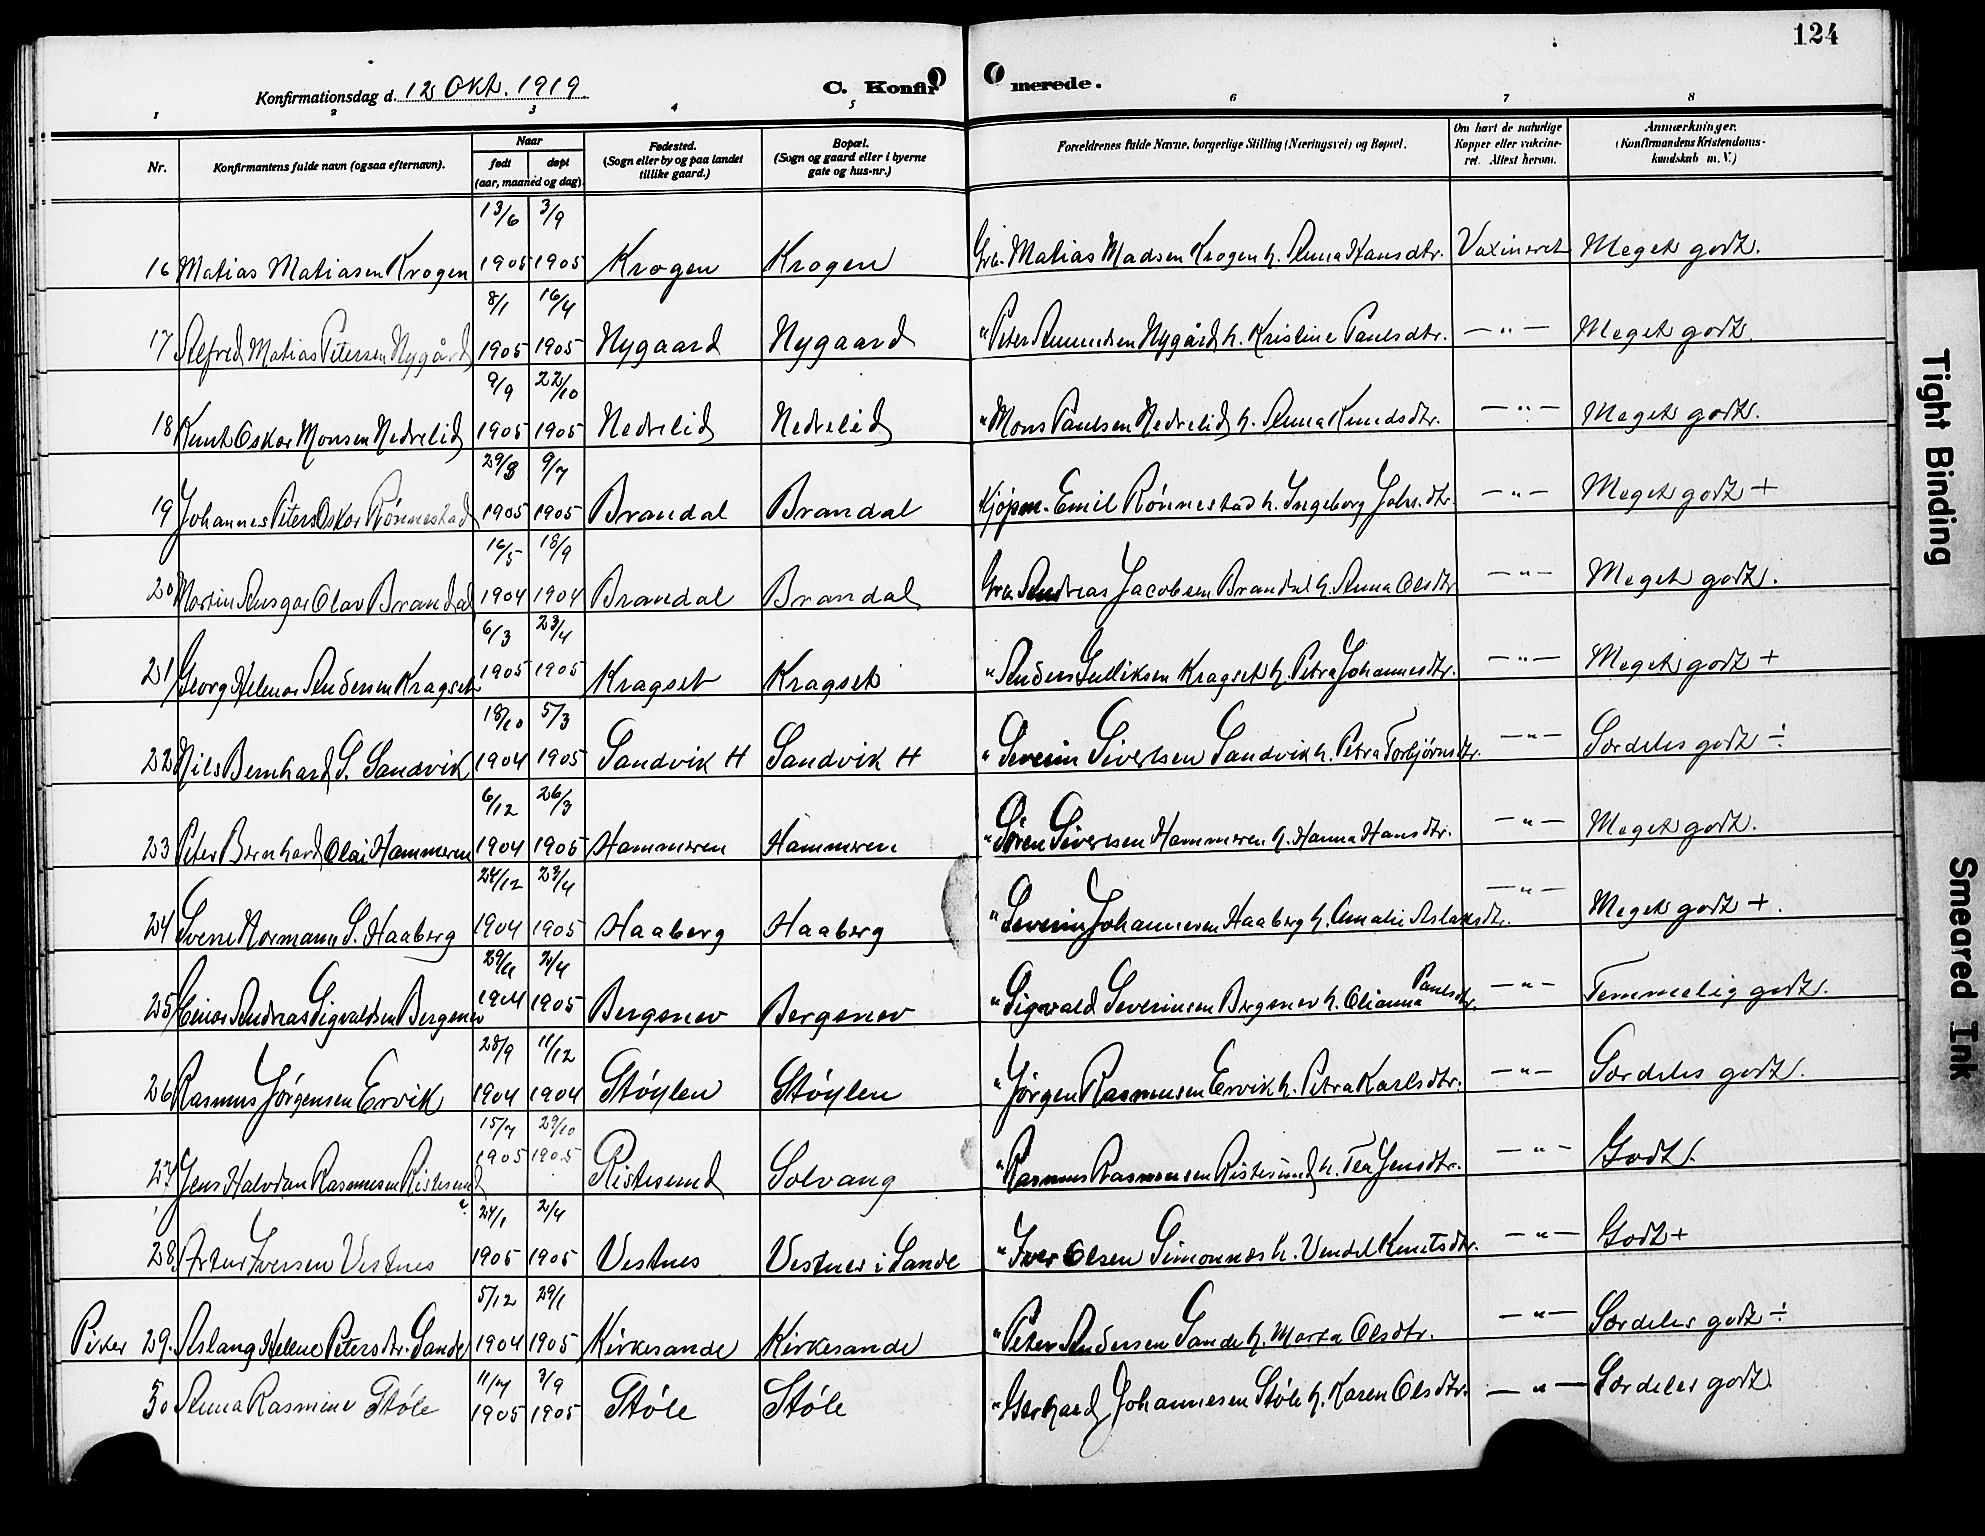 124
Konfirmationsdag d. 12 Okt. 1919.
C. Konfirmerede.
1 2 3 4 5 6 7 8
Nr. Konfirmantens fulde navn (ogsaa efternavn). Naar født døpt (aar, maaned og dag). Fødested. (Sogn eller by og paa landet tillike gaard.) Bopæl. (Sogn og gaard eller i byerne gate og hus-nr.) Forældrenes fulde Navne, borgerlige Stilling (Næringsvei) og Bopæl. Om havt de naturlige Kopper eller vakcineret. Attest herom. Anmærkninger. (Konfirmandens Kristendomskundskab m. V.)
13/6 3/9
16 Matias Matiasen Krogen 1905 1905 Krogen Krogen Grbr. Matias Madsen Krogen h. Anna Hansdtr. Vaxineret Meget godt.
8/1 16/4
17 Alfred Matias Petersen Nygård 1905 1905 Nygaard Nygaard " Peter Amundsen Nygård h. Kristine Paulsdtr. — " — Meget godt.
9/9 22/10
18 Knut Oskar Monsen Nedrelid 1905 1905 Nedrelid Nedrelid " Mons Paulsen Nedrelid h. Anna Knudsdtr. — " — Meget godt.
29/3 9/7
19 Johannes Peter Oskar Rønnestad 1905 1905 Brandal Brandal Kjøpm. Emil Rønnestad h. Ingeborg Johs.dtr. — " — Meget godt +
16/5 18/9
20 Martin Ansgar Olav Brandal 1904 1904 Brandal Brandal Grbr. Andreas Jacobsen Brandal h. Anna Olsdtr — " — Meget godt.
6/3 23/4
21 Georg Helmar Andersen Kragset 1905 1905 Kragset Kragset " Anders Gulliksen Kragset h. Petra Johannesdtr. — " — Meget godt +
18/10 5/3
22 Nils Bernhard S. Sandvik 1904 1905 Sandvik H Sandvik H " Severin Sivertsen Sandvik h. Petra Torbjørnsdtr. — " — Særdeles godt ÷
6/12 26/3
23 Peter Bernhard Olai Hammeren 1904 1905 Hammeren Hammeren " Søren Sivertsen Hammeren h. Hanna Hansdtr. — " — Meget godt.
24/12 23/4
24 Sverre Normann S. Haaberg 1904 1905 Haaberg Haaberg " Severin Johannesen Haaberg h. Amalie Aslaksdtr. — " — Meget godt +.
29/11 2/4
25 Einar Andreas Sigvaldsen Bergsnev 1904 1905 Bergsnev Bergsnev " Sigvald Severinsen Bergsnev h. Olianna Paulsdtr. — " — Temmelig godt.
28/9 11/12
26 Rasmus Jørgensen Ervik 1904 1904 Støylen Støylen " Jørgen Rasmussen Ervik h. Petra Karlsdtr. — " — Særdeles godt.
15/7 29/10
27 Jens Halvdan Rasmussen Ristesund 1905 1905 Ristesund Solvang " Rasmus Rasmussen Ristesund h. Tea Jensdtr. — " — Godt.
24/1 2/4
28 Artur Iversen Vestnes 1905 1905 Vestnes Vestnes i Sande " Iver Olsen Simonnes h. Vendel Knutsdtr. — " — Godt +
5/12 29/1
Piker 29. Aslaug Helene Petersdtr. Sande 1904 1905 Kirkesande Kirkesande " Peter Andersen Sande h. Marta Olsdtr. — " — Særdeles godt ÷
11/7 3/9
30 Anna Rasmine Støle 1905 1905 Støle Støle " Gerhard Johannesen Støle h. Karen Olsdtr. — " — Særdeles godt.
Tight Binding
Smeared Ink